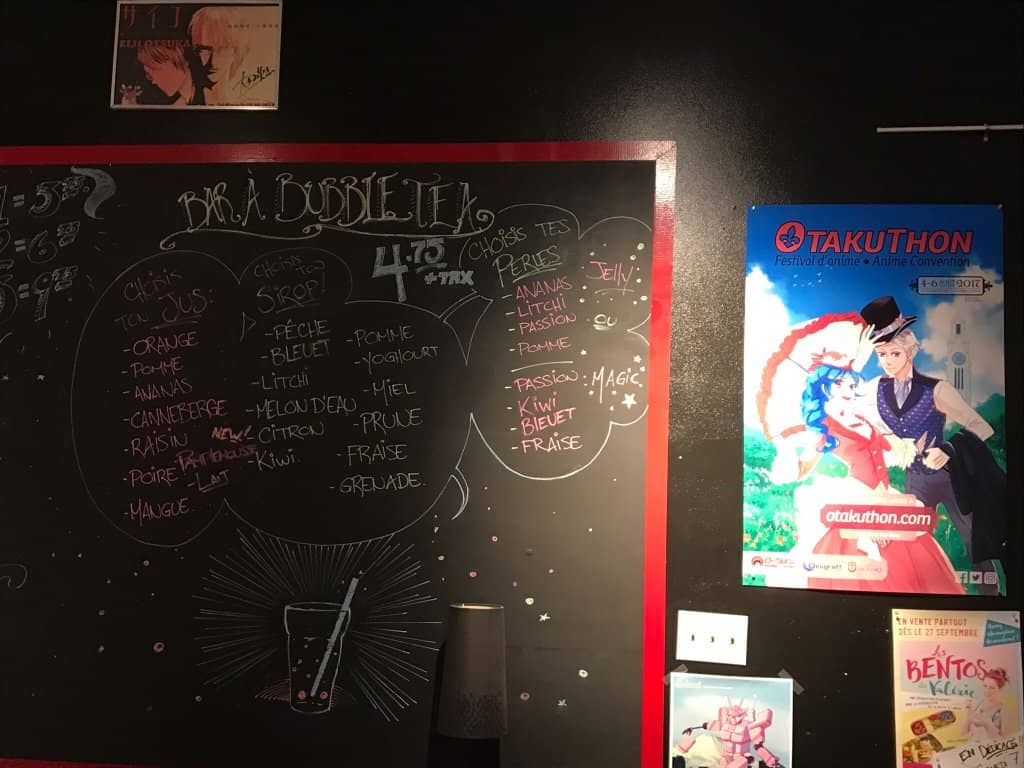 サイコ
EIJI OTSUKA
1=5
2=6
3=9
BAR À BUBBLE TEA
4.75
+TAX
CHOISIS
TON JUS
- ORANGE
- POMME
- ANANAS
- CANNEBERGE
- RAISIN
- POIRE
- MANGUE
NEW!
PAMPLEMOUSSE
- LAIT
CHOISIS TON
SIROP!
- PÊCHE
- BLEUET
- LITCHI
- MELON D'EAU
- CITRON
- KIWI
- POMME
- YOGHOURT
- MIEL
- PRUNE
- FRAISE
- GRENADE
CHOISIS TES
PERLES
- ANANAS
- LITCHI
- PASSION
- POMME
JELLY
OU
- PASSION
- KIWI
- BLEUET
- FRAISE
: MAGIC
OTAKUTHON
Festival d'anime • Anime Convention
4-6 2017
otakuthon.com
EN VENTE PARTOUT
DÈS LE 27 SEPTEMBRE
Les
BENTOS
de Valérie
EN DÉDICACE